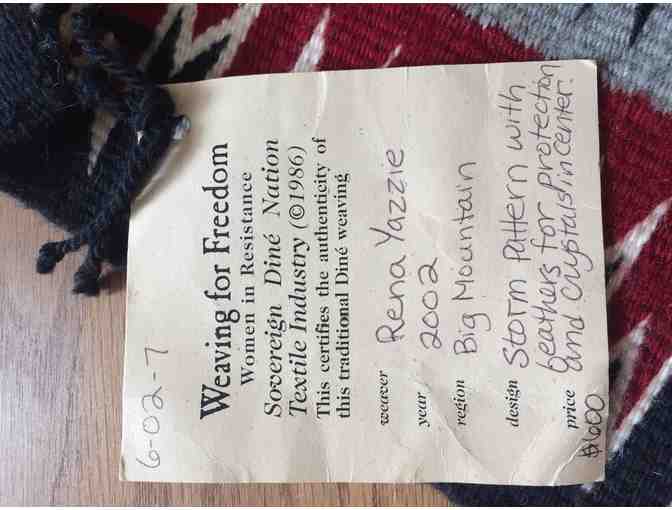 6-02-7
Weaving for Freedom
Women in Resistance
Sovereign Diné Nation
Textile Industry (©1986)
This certifies the authenticity of
this traditional Diné weaving
weaver Rena Yazzie
year 2002
region Big Mountain
design Storm Pattern with
feathers for protection
and Crystals in center.
price $600